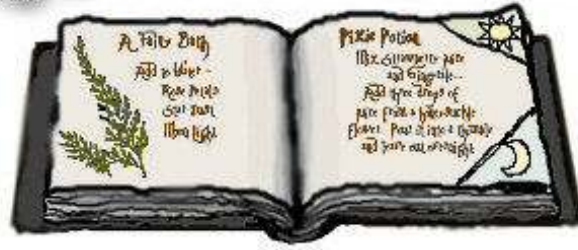 A Fairy Bath
Add to Water -
Rose Petals
Star Dust
Moon light
Pixie Potion
Mix Strawberry juice
and Gingerale...
Add three drops of
juice from a honeysuckle
flower. Pour it into a thimble
and leave out overnight